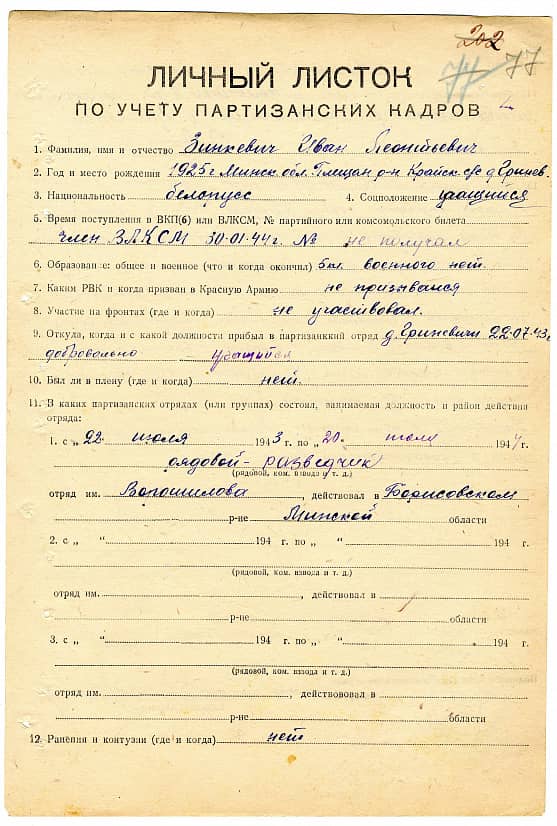 202
77 77
ЛИЧНЫЙ ЛИСТОК
ПО УЧЕТУ ПАРТИЗАНСКИХ КАДРОВ
1. Фамилия, имя и отчество Зинкевич Иван Леонтьевич
2. Год и место рождения 1925г Минск обл. Плещан р-н Крайск с/с д. Гринев.
3. Национальность белорусс 4. Соцположение учащийся
5. Время поступления в ВКП(б) или ВЛКСМ, № партийного или комсомольского билета
член ВЛКСМ 30.01.44г. № не получал
6. Образование: общее и военное (что и когда окончил) 5 кл. военного нет.
7. Каким РВК и когда призван в Красную Армию не призывался
8. Участие на фронтах (где и когда) не участвовал.
9. Откуда, когда и с какой должности прибыл в партизанский отряд д. Гриневичи 22.07.43г
добровольно учащийся
10. Был ли в плену (где и когда) нет.
11. В каких партизанских отрядах (или группах) состоял, занимаемая должность и район действия
отряда:
1. с „ 22 июля 1943 г. по „ 20. июля 1944 г.
рядовой - разведчик
(рядовой, ком. взвода и т. д.)
отряд им. Ворошилова, действовал в Борисовском
р-не Минской области
2. с „ “ 194 г. по „ “ 194 г.
(рядовой, ком. взвода и т. д.)
отряд им. , действовал в
р-не области
3. с „ “ 194 г. по „ “ 194 г.
(рядовой, ком. взвода и т. д.)
отряд им. , действововал в
р-не области
12. Ранения и контузии (где и когда) нет